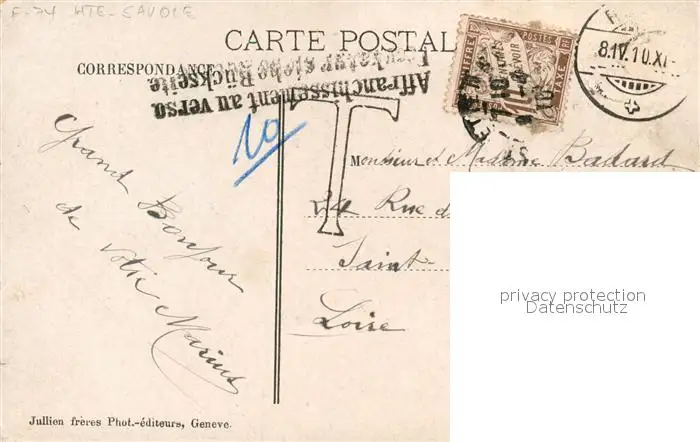 F-74 HTE-SAVOIE
CARTE POSTAL
CORRESPONDANCE
Affranchissement au verso
Frankatur siehe Rückseite
CHIFFRE
POSTES
TAXE
8.IV.10.XI
T
10
Monsieur et Madame Badard
24 Rue d
Saint
Loire
Grand Bonjour
de votre Marius
privacy protection
Datenschutz
Jullien frères Phot.-éditeurs, Geneve.